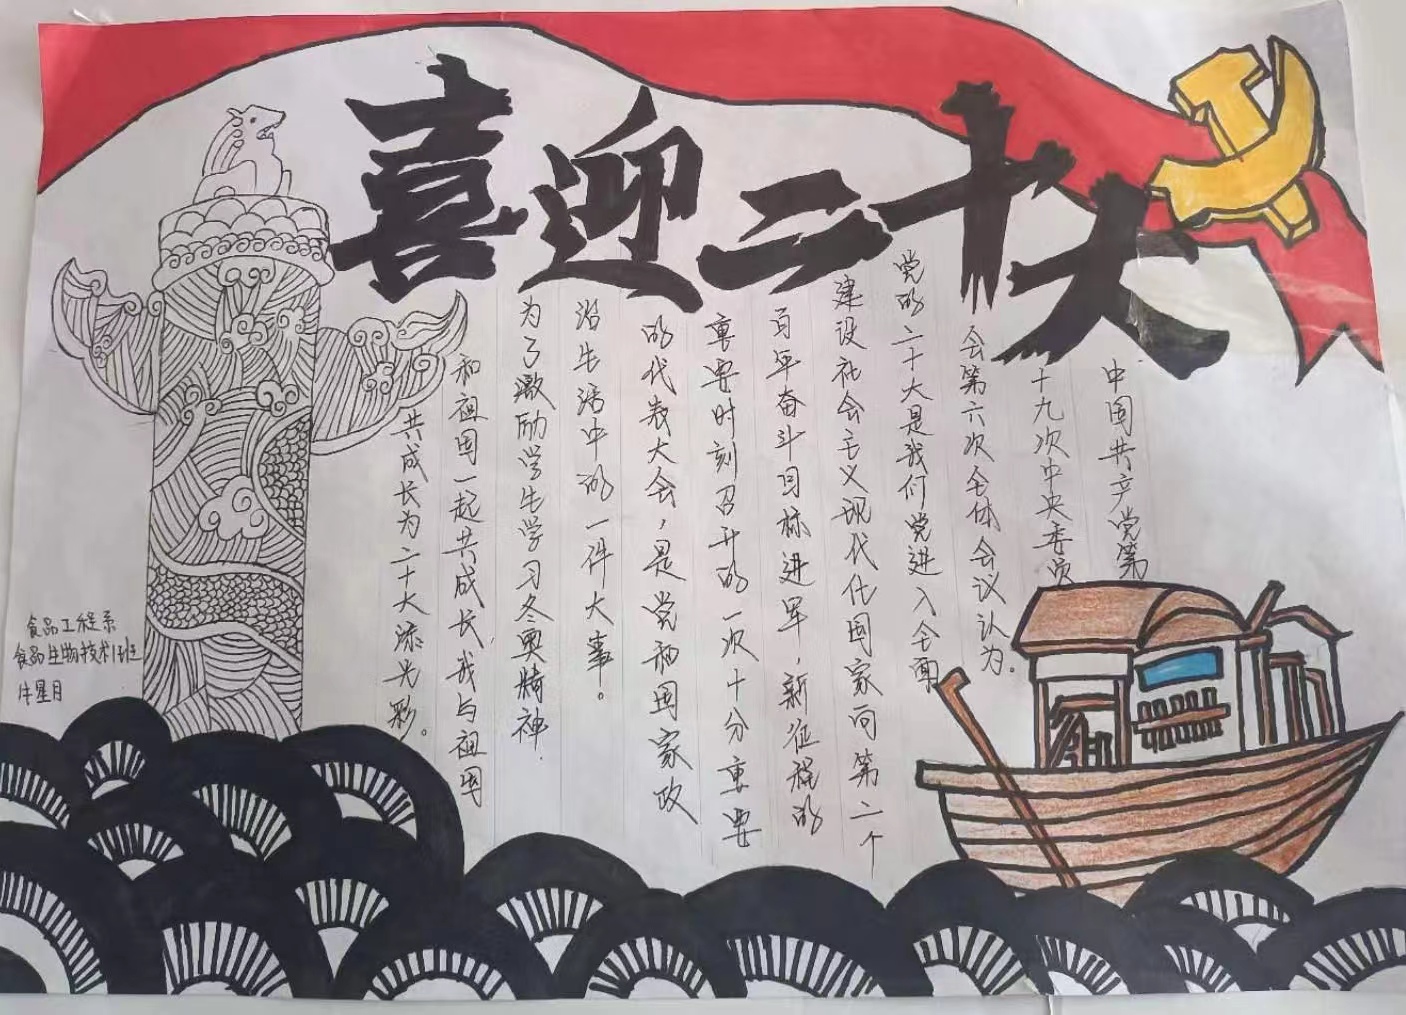 喜迎二十大
中国共产党第
十九次中央委员
会第六次全体会议认为。
党的二十大是我们党进入全面
建设社会主义现代化国家向第二个
百年奋斗目标进军，新征程的
重要时刻召开的一次十分重要
的代表大会，是党和国家政
治生活中的一件大事。
为了激励学生学习冬奥精神.
和祖国一起共成长，我与祖国
共成长为二十大添光彩。
食品工程系
食品生物技术1班
牛星月